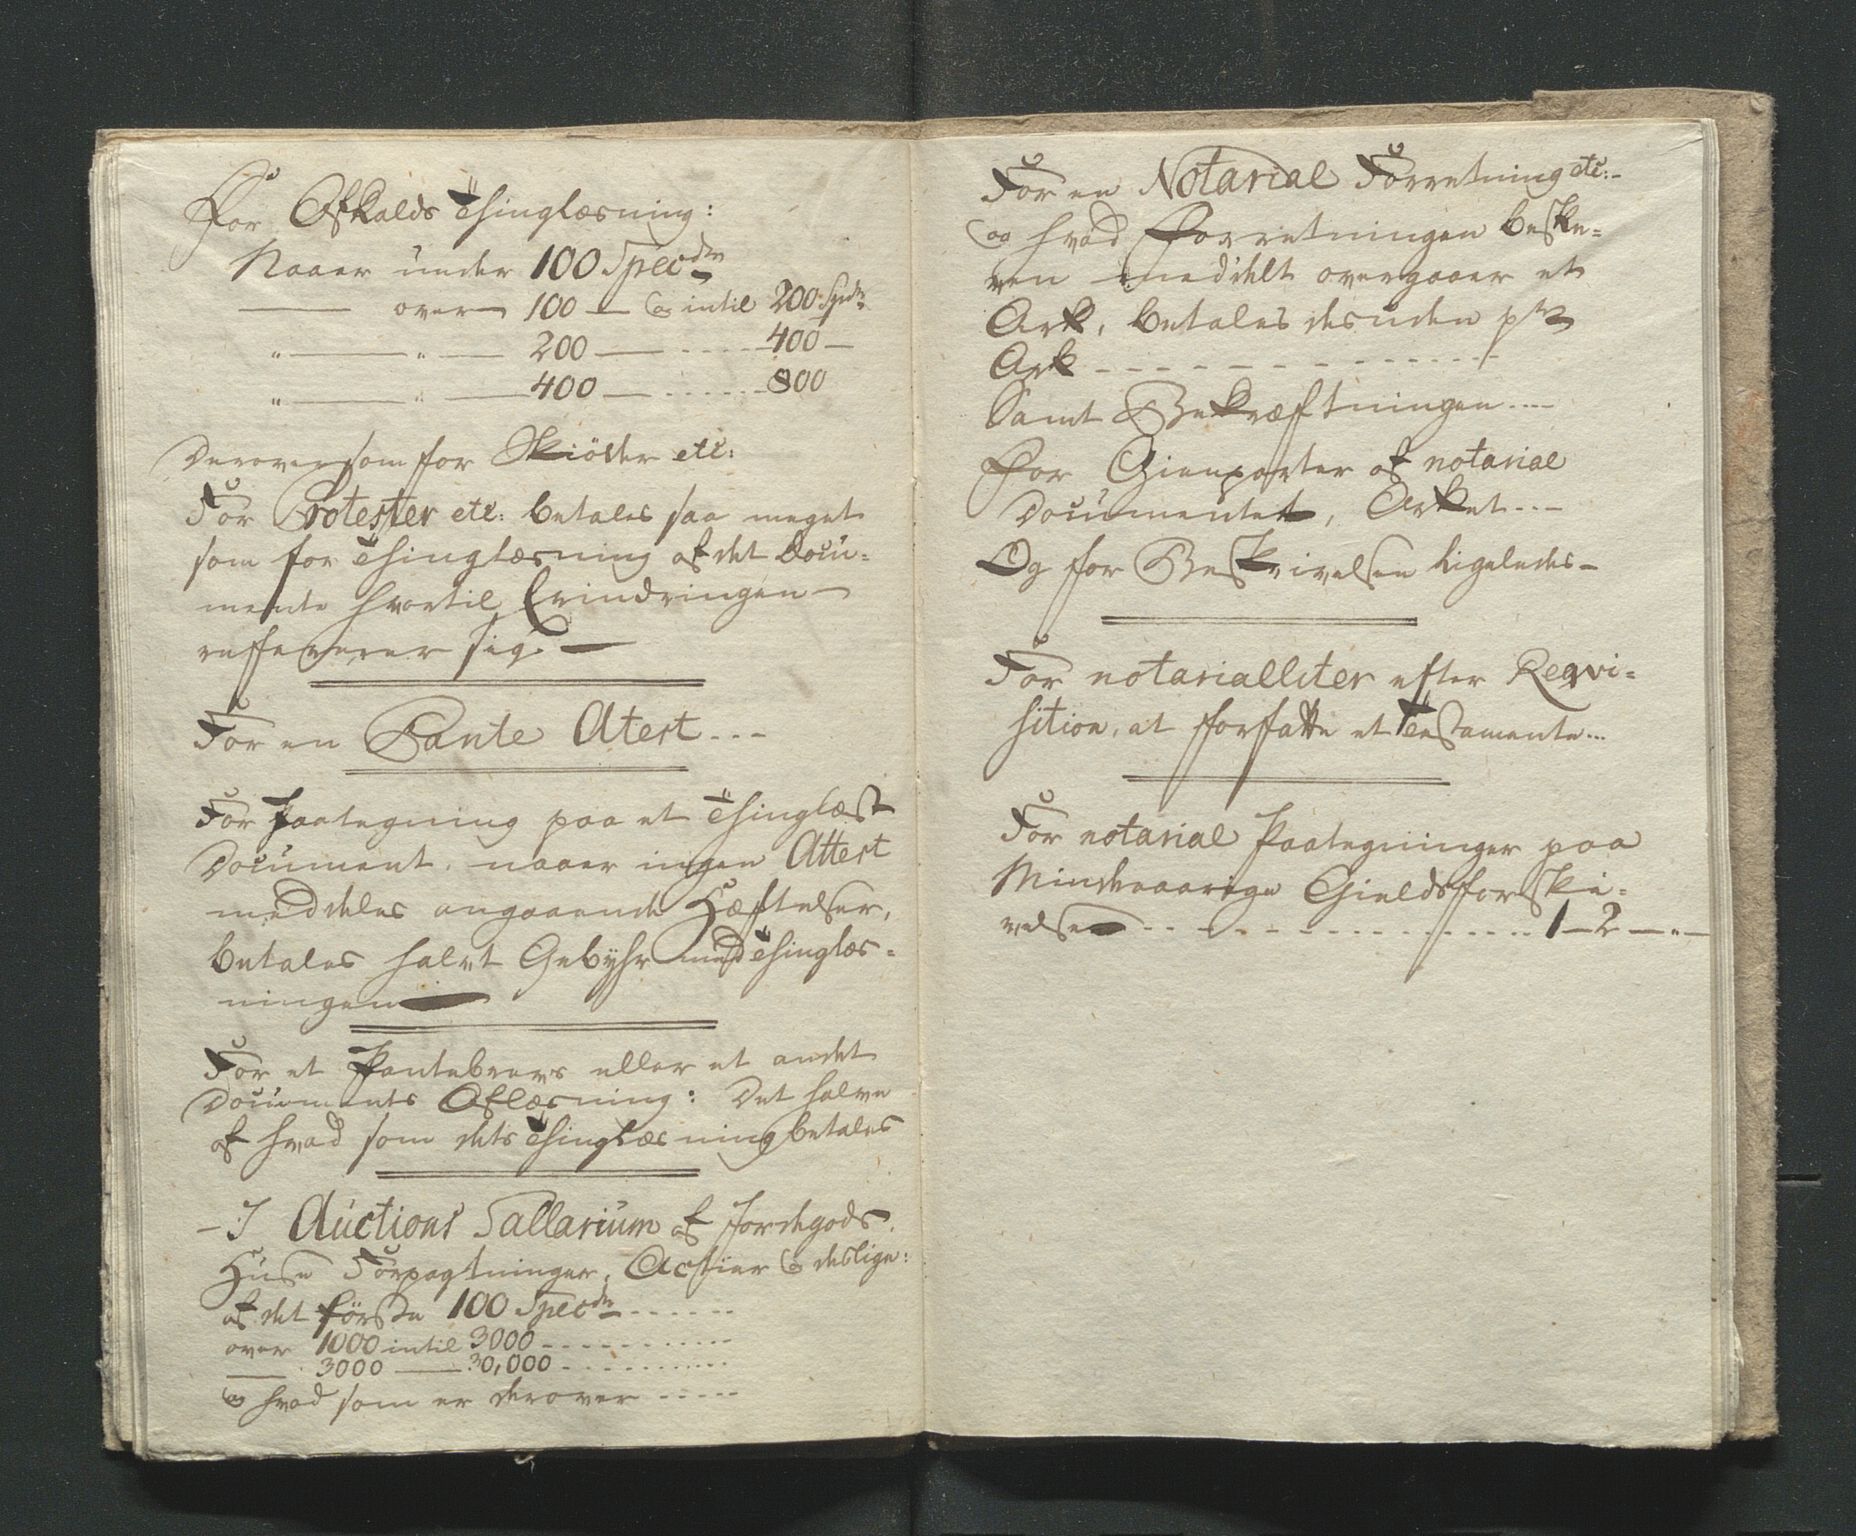 For Afkalds Thinglæsning:
Naaer under 100 Specdlr
— over — 100 — og intil 200 Spdlr
" — " — 200 — - - - - 400 —
" — " — 400 — - - - - 800
Derover som for Skiöder etc:
For Protester etc: betales saa meget
som for Thinglæsning af det Docu-
mente hvortil Erindringen
refferrerer sig. —
For en Pante Atest - - -
For Paategning paa et Thinglæst
Document, naaer ingen Attest
meddeles angaaende Hæftelser,
betales halvt Gebyhr med Thinglæs-
ningen —
For et Pantebrevs eller et andet
Documents Aflæsning: Det halve
af hvad som dets Thinglæsning betales
- I Auctions Sallarium af Jordegods.
Huse Forpagtninger, Actier og deslige:
af det förste 100 Specdlr - - - - - -
over 1000 intil 3000 - - - - - - - -
— 3000 — 30,000 - - - - - - - -
og hvad som er derover - - - - -
For en Notarial Forretning etc:-
og hvad Forretningen beskre-
ven meddelt overgaaer et
Ark, betales desuden pr
Ark - - - - - - - - - - - -
Samt Bekræftningen - - - -
For Gienparter af notarial
Documenter, Arket - - -
Og for Beskrivelsen ligeledes -
For notarialiter efter Reqvi-
sition, at forfatte et Testamente...
For notarial Paategninger paa
Mindreaarige Gieldsforskri-
velser - - - - - - - - - - - - - 1 - 2 - " -